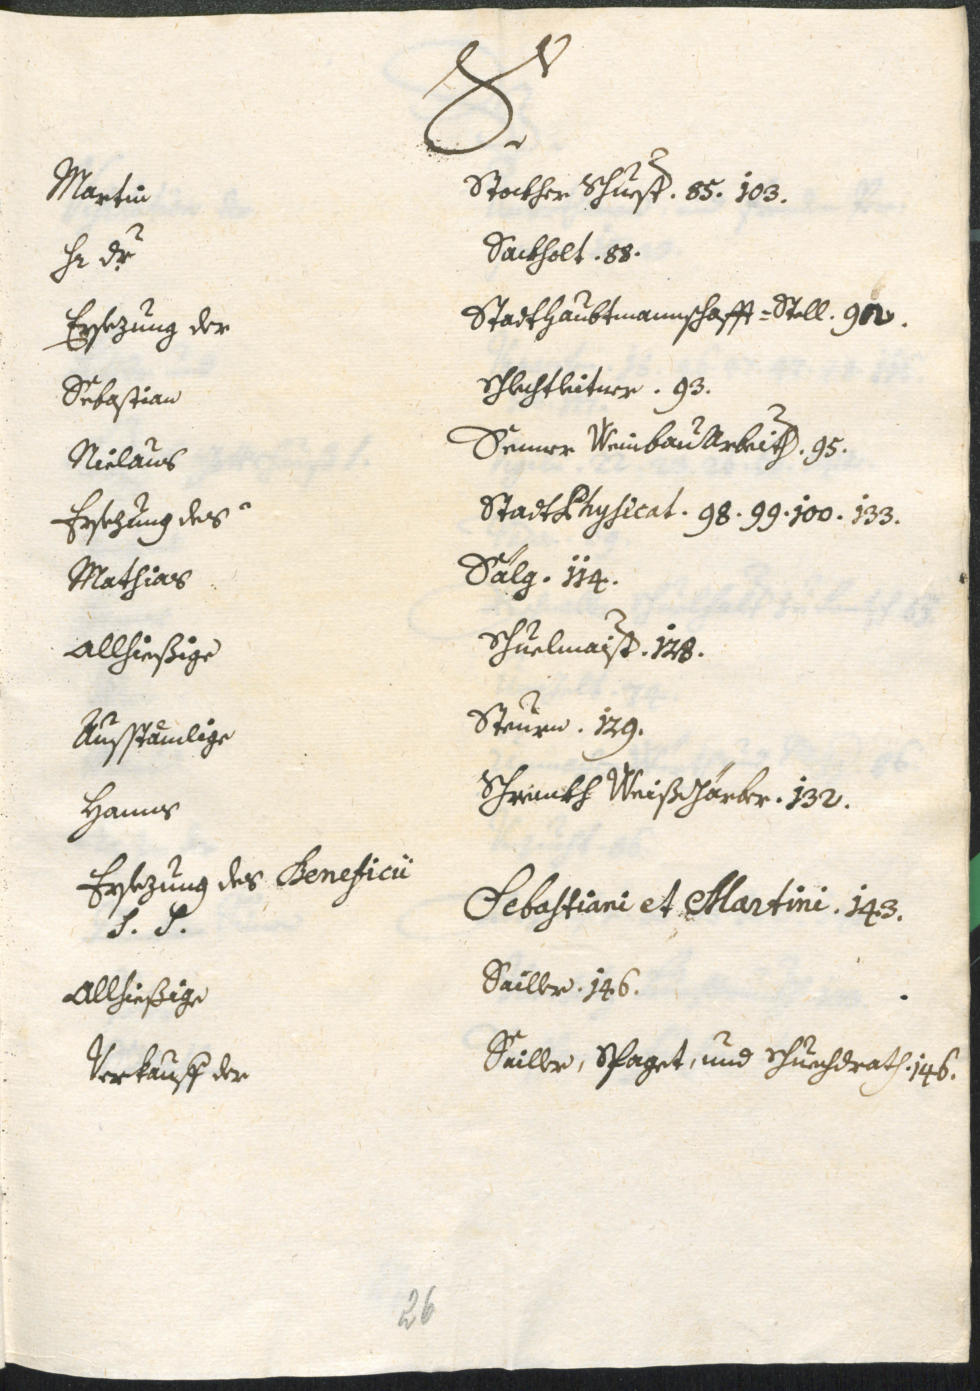 S.
Martin Stockher Schuest. 85. 103.
Hr. Dr. Sackholt. 88.
Ersezung der StadtHaubtmannschafft=Stell. 92.
Sebastian Schlechtleitner. 93.
Niclaus Senner WeinbauArbeith. 95.
Ersezung des StadtPhysicat. 98. 99. 100. 133.
Mathias Sälg. 114.
Allhießige Schuelmaist. 128.
Ausstämlige Steurn. 129.
Hanns Schrenkh Weißgärber. 132.
Ersezung des Beneficii
S. S. Sebastiani et Martini. 143.
Allhießige Sailler. 146.
Verkauff der Sailler, Spaget, und Schuechdrath. 146.
26